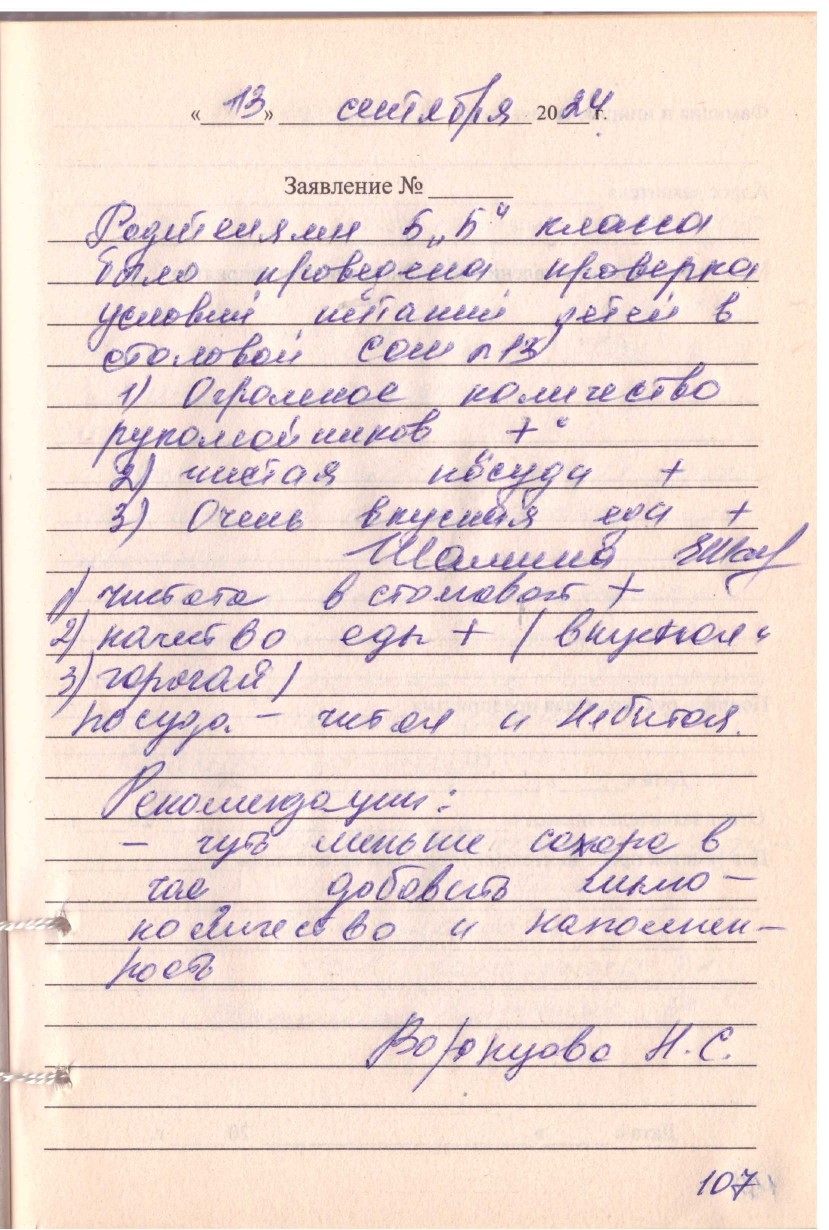 « 13 » сентября 2024 г.
Заявление №
Родителями 5 „Б" класса
было проведена проверка
условий питаний детей в
столовой СОШ №13
1) Огромное количество
рукомойников +
2) чистая посуда +
3) Очень вкусная еда +
Шалина
1) чистота в столовой +
2) качество еды + ( вкусная и
3) горячая )
посуда – читая и небитая.
Рекомендации:
– чуть меньше сахара в
чае добавить мыло –
количество и наполнен–
ность
Воронцова Н.С.
107